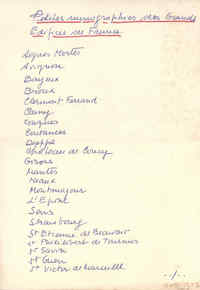 Petites monographies des Grands
Edifices de France
Aigues Mortes
Avignon
Bayeux
Brioux
Clermont Ferrand
Cluny
Coutances
Dieppe
Château de Coucy
Gisors
Mantes
Meaux
Montmajour
L'Epine
Sens
Strasbourg
St Etienne de Beauvais
St Philibert de Tournus
St Savin
St Guen
St Victor de Marseille
../..